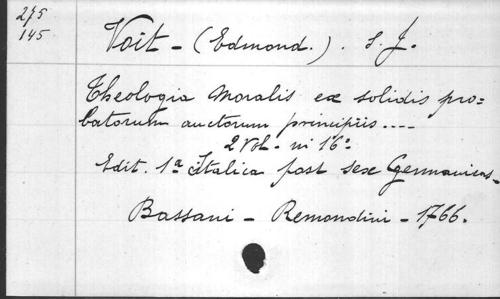 275
145
Voit - (Edmond.). S. J.
Theologia Moralis ex solidis pro=
batorum auctorum principiis ....
2 Vol. in 16°
Edit. 1a Italica post sex Germanicas_
Bassani - Remondini - 1766.